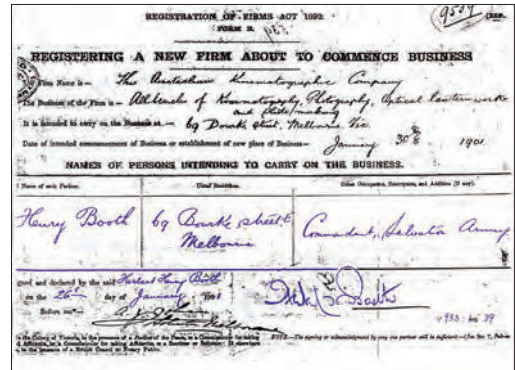 REGISTRATION OF FIRMS ACT 1892.
FORM 2.
9539
REGISTERING A NEW FIRM ABOUT TO COMMENCE BUSINESS
Firm Name is— The Australian Kinematographic Company
The Business of the Firm is— All branches of Kinematography, Photography, Optical Lantern works
and slide making
It is intended to carry on the Business at— 69 Bourke Street, Melbourne Vic.
Date of intended commencement of Business or establishment of new place of Business— January 30th 1901
NAMES OF PERSONS INTENDING TO CARRY ON THE BUSINESS.
Name of each Partner. Usual Residence. Other Occupation, Description, and Addition (if any).
Henry Booth 69 Bourke Street Melbourne Commandant, Salvation Army
and declared by the said Herbert Henry Booth
on the 26th day of January 1901
Before me—
in the Colony of Victoria, in the presence of a Justice of the Peace, or a Commissioner for taking